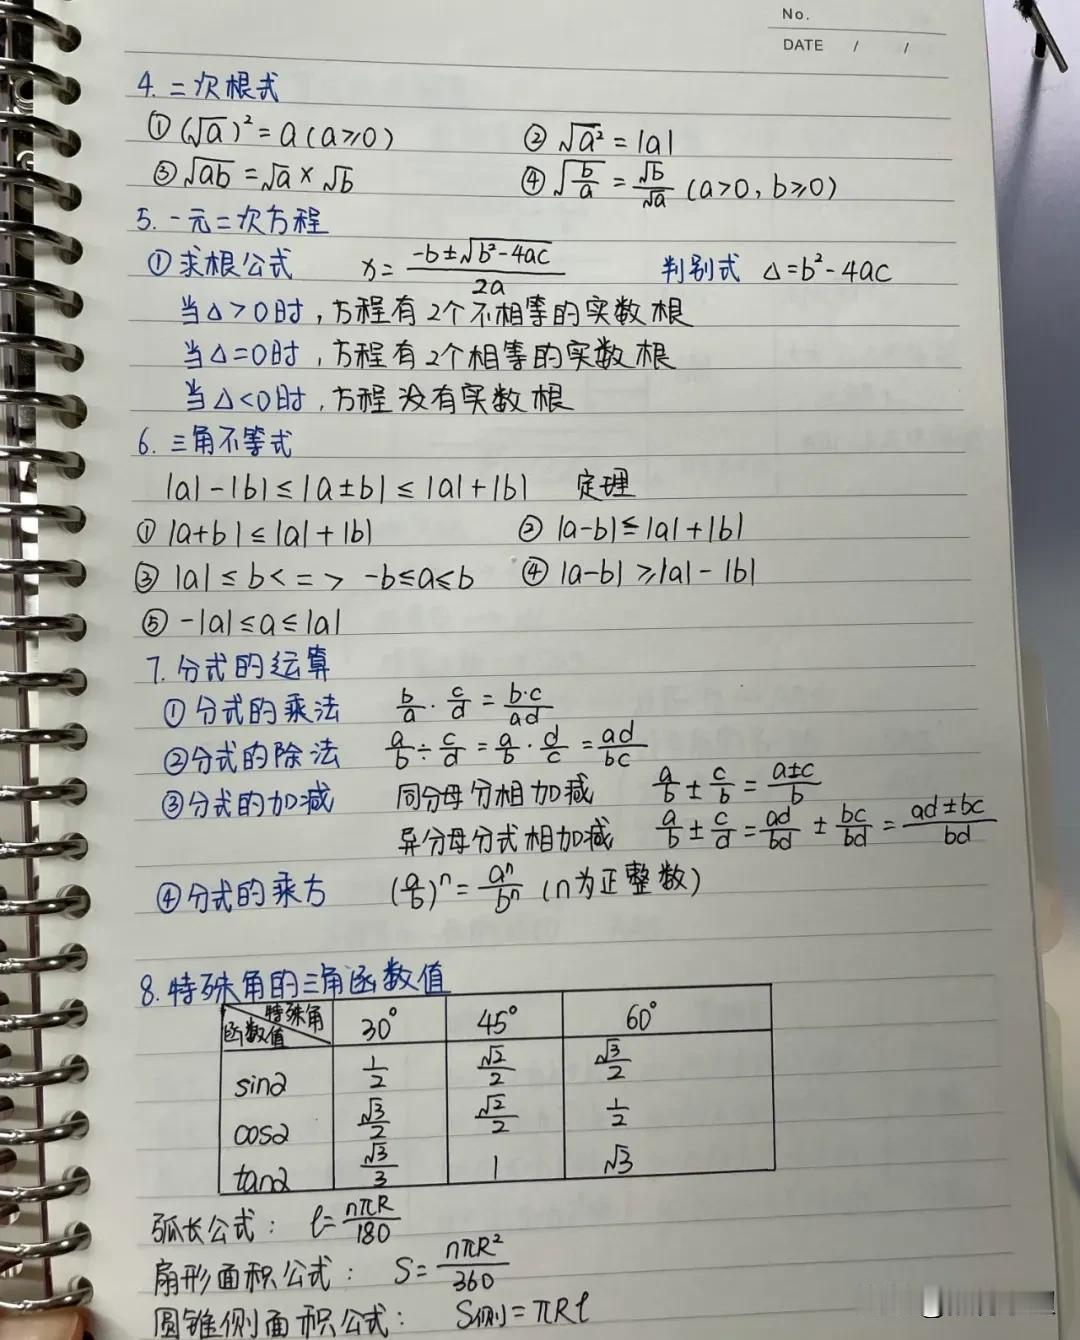 No.
DATE / /
4. 二次根式
① (√a)² = a (a≥0) ② √a² = |a|
③ √ab = √a × √b ④ √(b/a) = √b/√a (a>0, b≥0)
5. 一元二次方程
① 求根公式 x = (-b±√(b²-4ac))/2a 判别式 △=b²-4ac
当△>0时,方程有2个不相等的实数根
当△=0时,方程有2个相等的实数根
当△<0时,方程没有实数根
6. 三角不等式
|a|-|b| ≤ |a±b| ≤ |a|+|b| 定理
① |a+b| ≤ |a|+|b| ② |a-b| ≤ |a|+|b|
③ |a| ≤ b <=> -b≤a≤b ④ |a-b| ≥ |a|-|b|
⑤ -|a| ≤ a ≤ |a|
7. 分式的运算
① 分式的乘法 b/a · c/d = b·c/ad
② 分式的除法 a/b ÷ c/d = a/b · d/c = ad/bc
③ 分式的加减 同分母分相加减 a/b ± c/b = (a±c)/b
异分母分式相加减 a/b ± c/d = ad/bd ± bc/bd = (ad±bc)/bd
④ 分式的乘方 (a/b)ⁿ = aⁿ/bⁿ (n为正整数)
8. 特殊角的三角函数值
特殊角 函数值 30° 45° 60°
sin2 1/2 √2/2 √3/2
cos2 √3/2 √2/2 1/2
tan2 √3/3 1 √3
弧长公式: l = nπR/180
扇形面积公式: S = nπR²/360
圆锥侧面积公式: S侧 = πRl